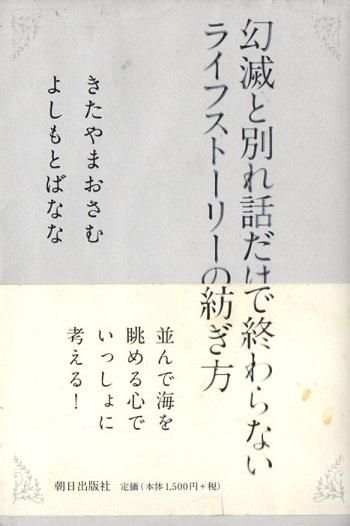 幻滅と別れ話だけで終わらない
ライフストーリーの紡ぎ方
きたやまおさむ
よしもとばなな
並んで海を
眺める心で
いっしょに
考える！
朝日出版社 定価（本体1,500円＋税）